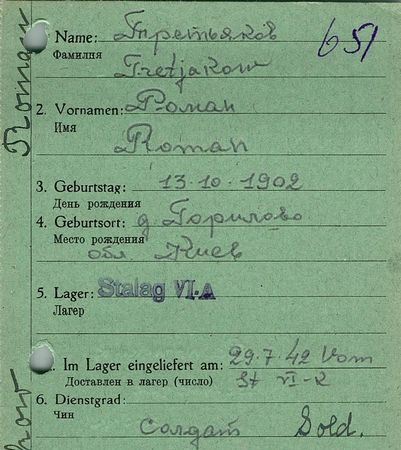 Name: Третьяков 651
Фамилия
Tretjakow
2. Vornamen: Роман
Имя
Roman
3. Geburtstag: 13.10.1902
День рождения
4. Geburtsort: д. Горилово
Место рождения
обл Киев
5. Lager: Stalag VI-A
Лагер
. Im Lager eingeliefert am: 29.7.42 vom
Доставлен в лагер (число) St VI-K
6. Dienstgrad:
Чин
Солдат Sold.
Roman
how